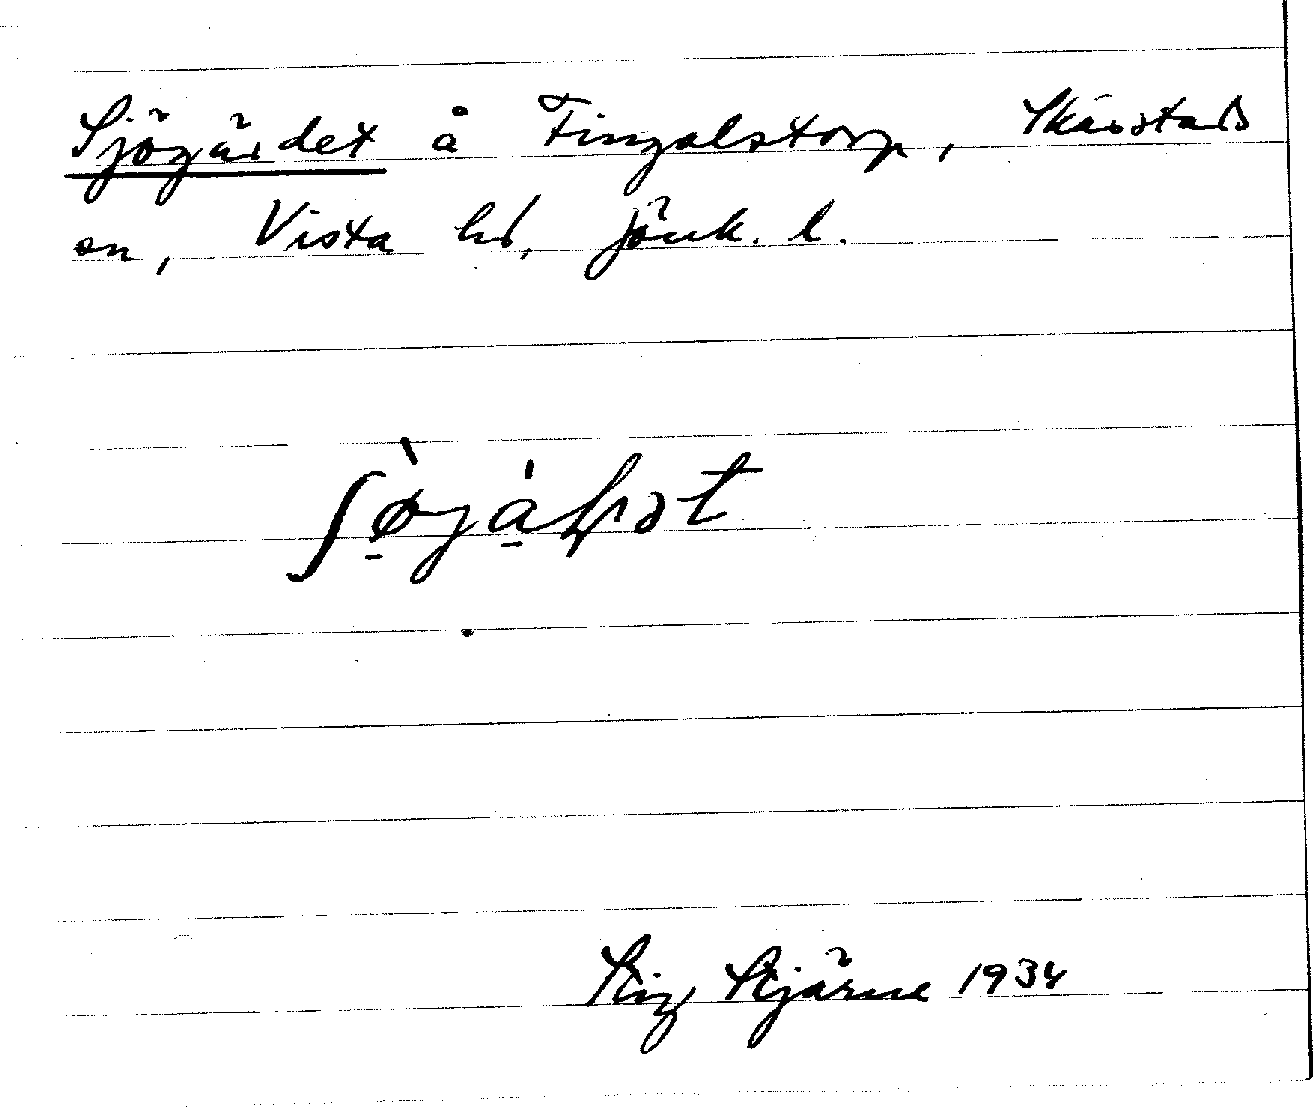 Sjögärdet å Fingalstorp, Skärstads
sn, Vista hd, Jönk. l.
Stig Stjärne 1934